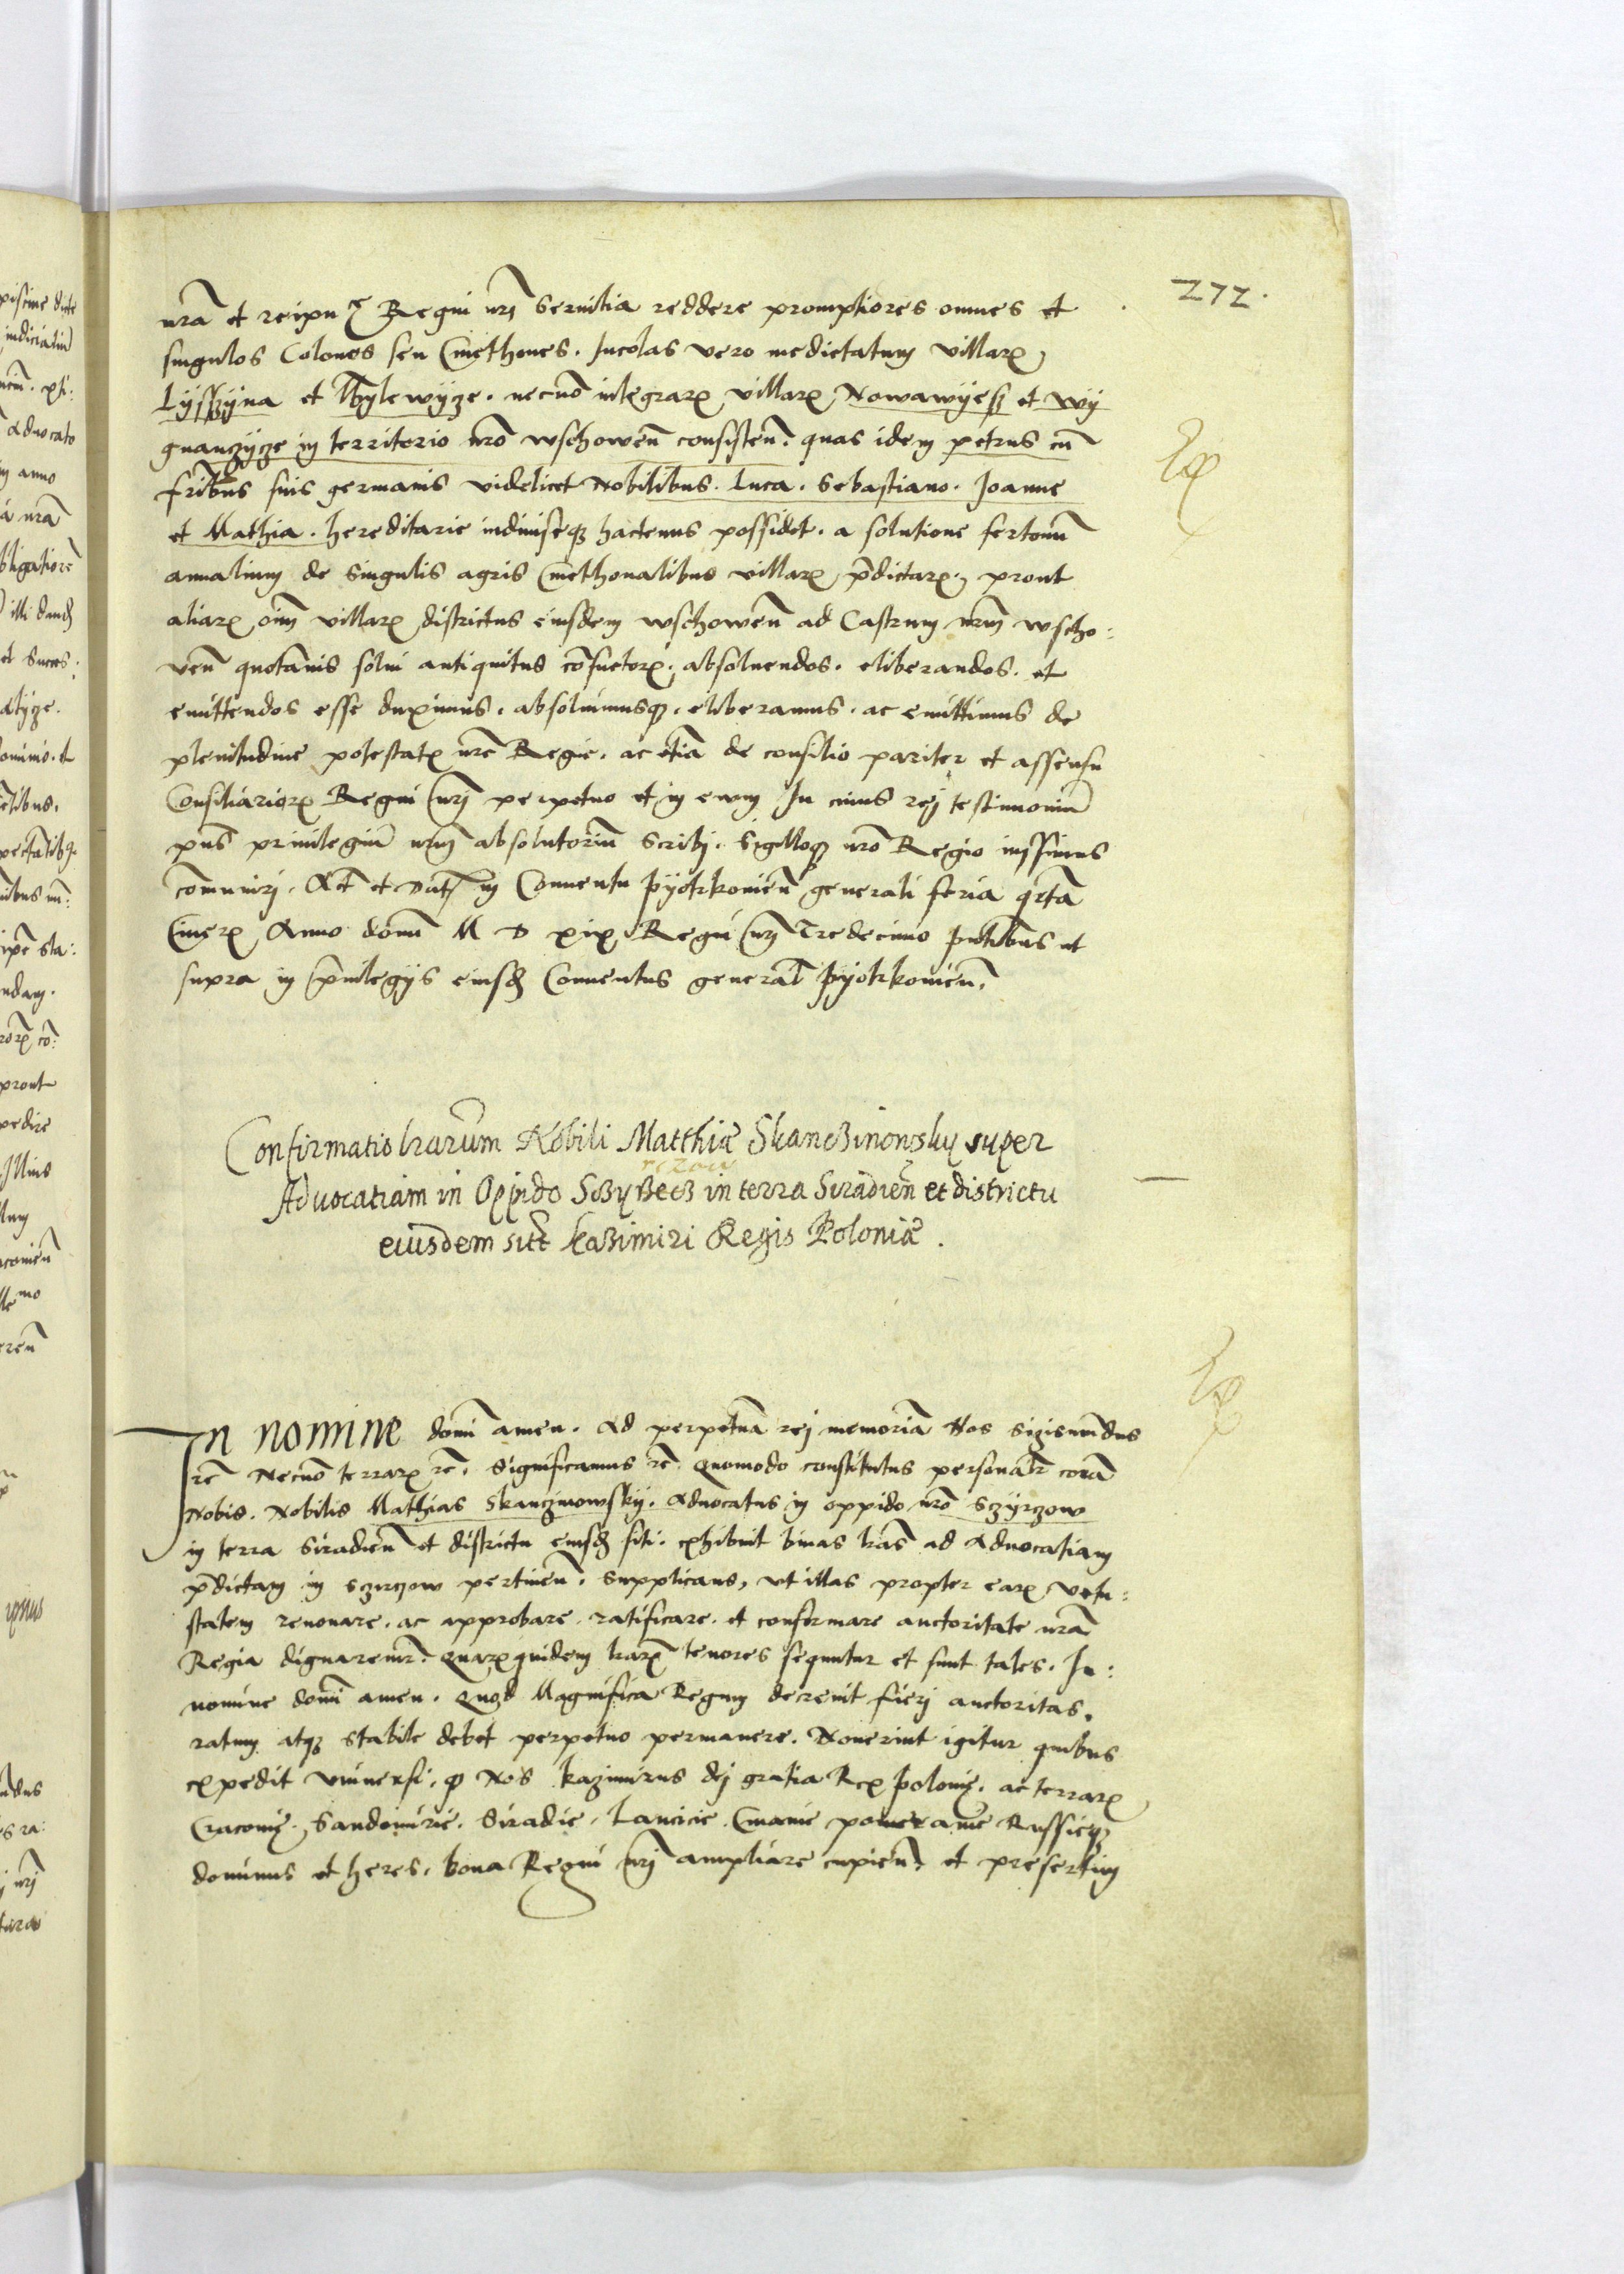 272.
nr̃a et reipu⁊ Regni nr̃j seruitia reddere promptiores omnes et
singulos Colonos seu Cmethones. Incolas vero medietatum villarꝫ
Lysszyna et Thylewycze. necno͂ integrarꝫ villarꝫ Nowawyesz et wy
gnanczycze in territorio nr̃o wschowen͂ consisten͂. quas idem petrus cu͂
fr͂ibus suis germanis videlicet Nobilibus. Luca. Sebastiano. Joanne
et Mathia. hereditarie indiuiseqꝫ hactenus possidet. a solutione fertonu͂
annalium de singulis agris Cmethonalibus villarꝫ p͂dictarꝫ, prout
aliarꝫ oi͂m villarꝫ districtus eiusdem wschowen͂ ad Castrum nr̃m wscho:
uen͂ quotannis solui antiquitus co͂suetorꝫ, absoluendos. eliberandos. et
emittendos esse duximus. absoluimusqꝫ. eliberamus. ac emittimus de
plenitudine potestatꝫ nr̃e Regie. ac etia͂ de consilio pariter et assensu
Consiliariorꝫ Regni nr̃j perpetuo et in ewm In cuius rej testimoniu͂
pn͂s priuilegiu͂ nr̃m absolutoriu͂ scribj. sigilloqꝫ nr̃o Regio iussimus
co͂muniri. Act͂ et Dat͂ in Conuentu pyotrkouien͂ generali feria qrta͂
Cinerꝫ Anno domi͂ M D xix Regni nr̃j Tredecimo pn͂tibus ut
supra in p͂uilegijs eiusd͂ Conuentus general͂ pyotrkouien͂.
Confirmatio lr̃arum Nobili Matthiæ Skanczinowsky super
rczow
Aduocatiam in Oppido Sczy in terra Siradien͂ et districtu
eiusdem sit͂ Kazimiri Regis Poloniæ.
In nomine domi͂ amen. Ad perpetua͂ rej memoria͂ Nos Sigismu͂dus
rc͂ Necno͂ terrarꝫ rc͂. Significamus rc͂. Quomodo constitutus personal͂r cora͂
Nobis. Nobilis Mathias Skanczinowsky. Aduocatus in oppido nr̃o Sczyrczow
in terra Siradien͂ et districtu eiusd͂ siti. exhibuit binas lr̃as ad Aduocatiam
p͂dictam in Sczrczow pertinen͂. Supplicans, vt illas propter earꝫ vetu:
statem renouare. ac approbare. ratificare. et confirmare auctoritate nr̃a
Regia dignaremr͂. Quarꝫquidem lr̃arꝫ tenores sequntur et sunt tales. In:
nomine domi͂ amen. Quod Magnifica Regum decreuit fierj auctoritas.
ratum atqꝫ stabile debet perpetuo permanere. Nouerint igitur quibus
expedit vniuersi. ꝙ Nos kazimirus dej gratia Rex polonie. ac terrarꝫ
Cracouie, Sandomirie. Siradie. Lancicie. Cuiauie pomeranie Russieqꝫ
dominus et heres. bona Regni nr̃j ampliare cupien͂. et presertim